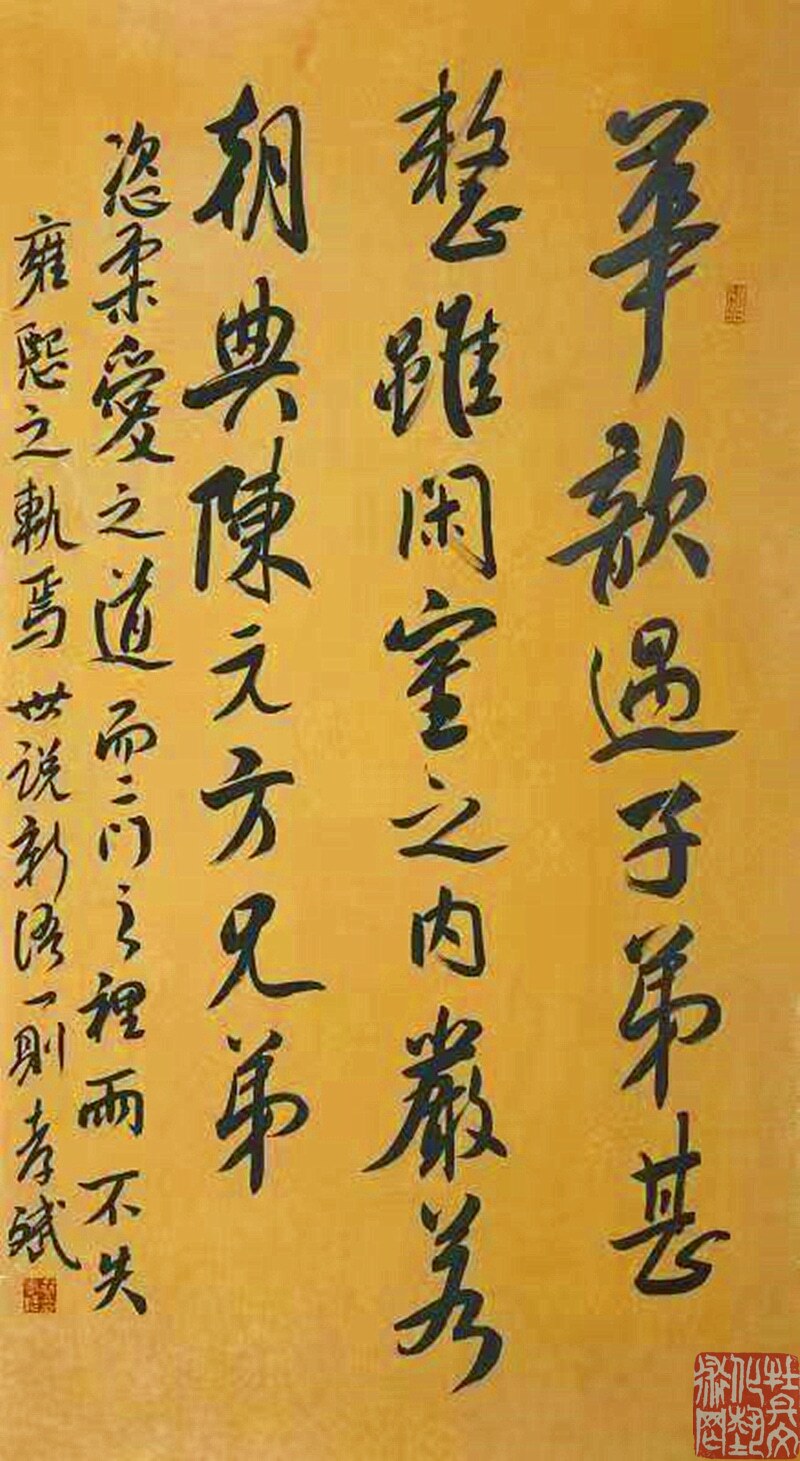 華歆遇子弟甚
整雖闲室之内嚴若
朝典陳元方兄弟
恣柔愛之道而二门之裡兩不失
雍熙之軌焉世说新语一則孝斌